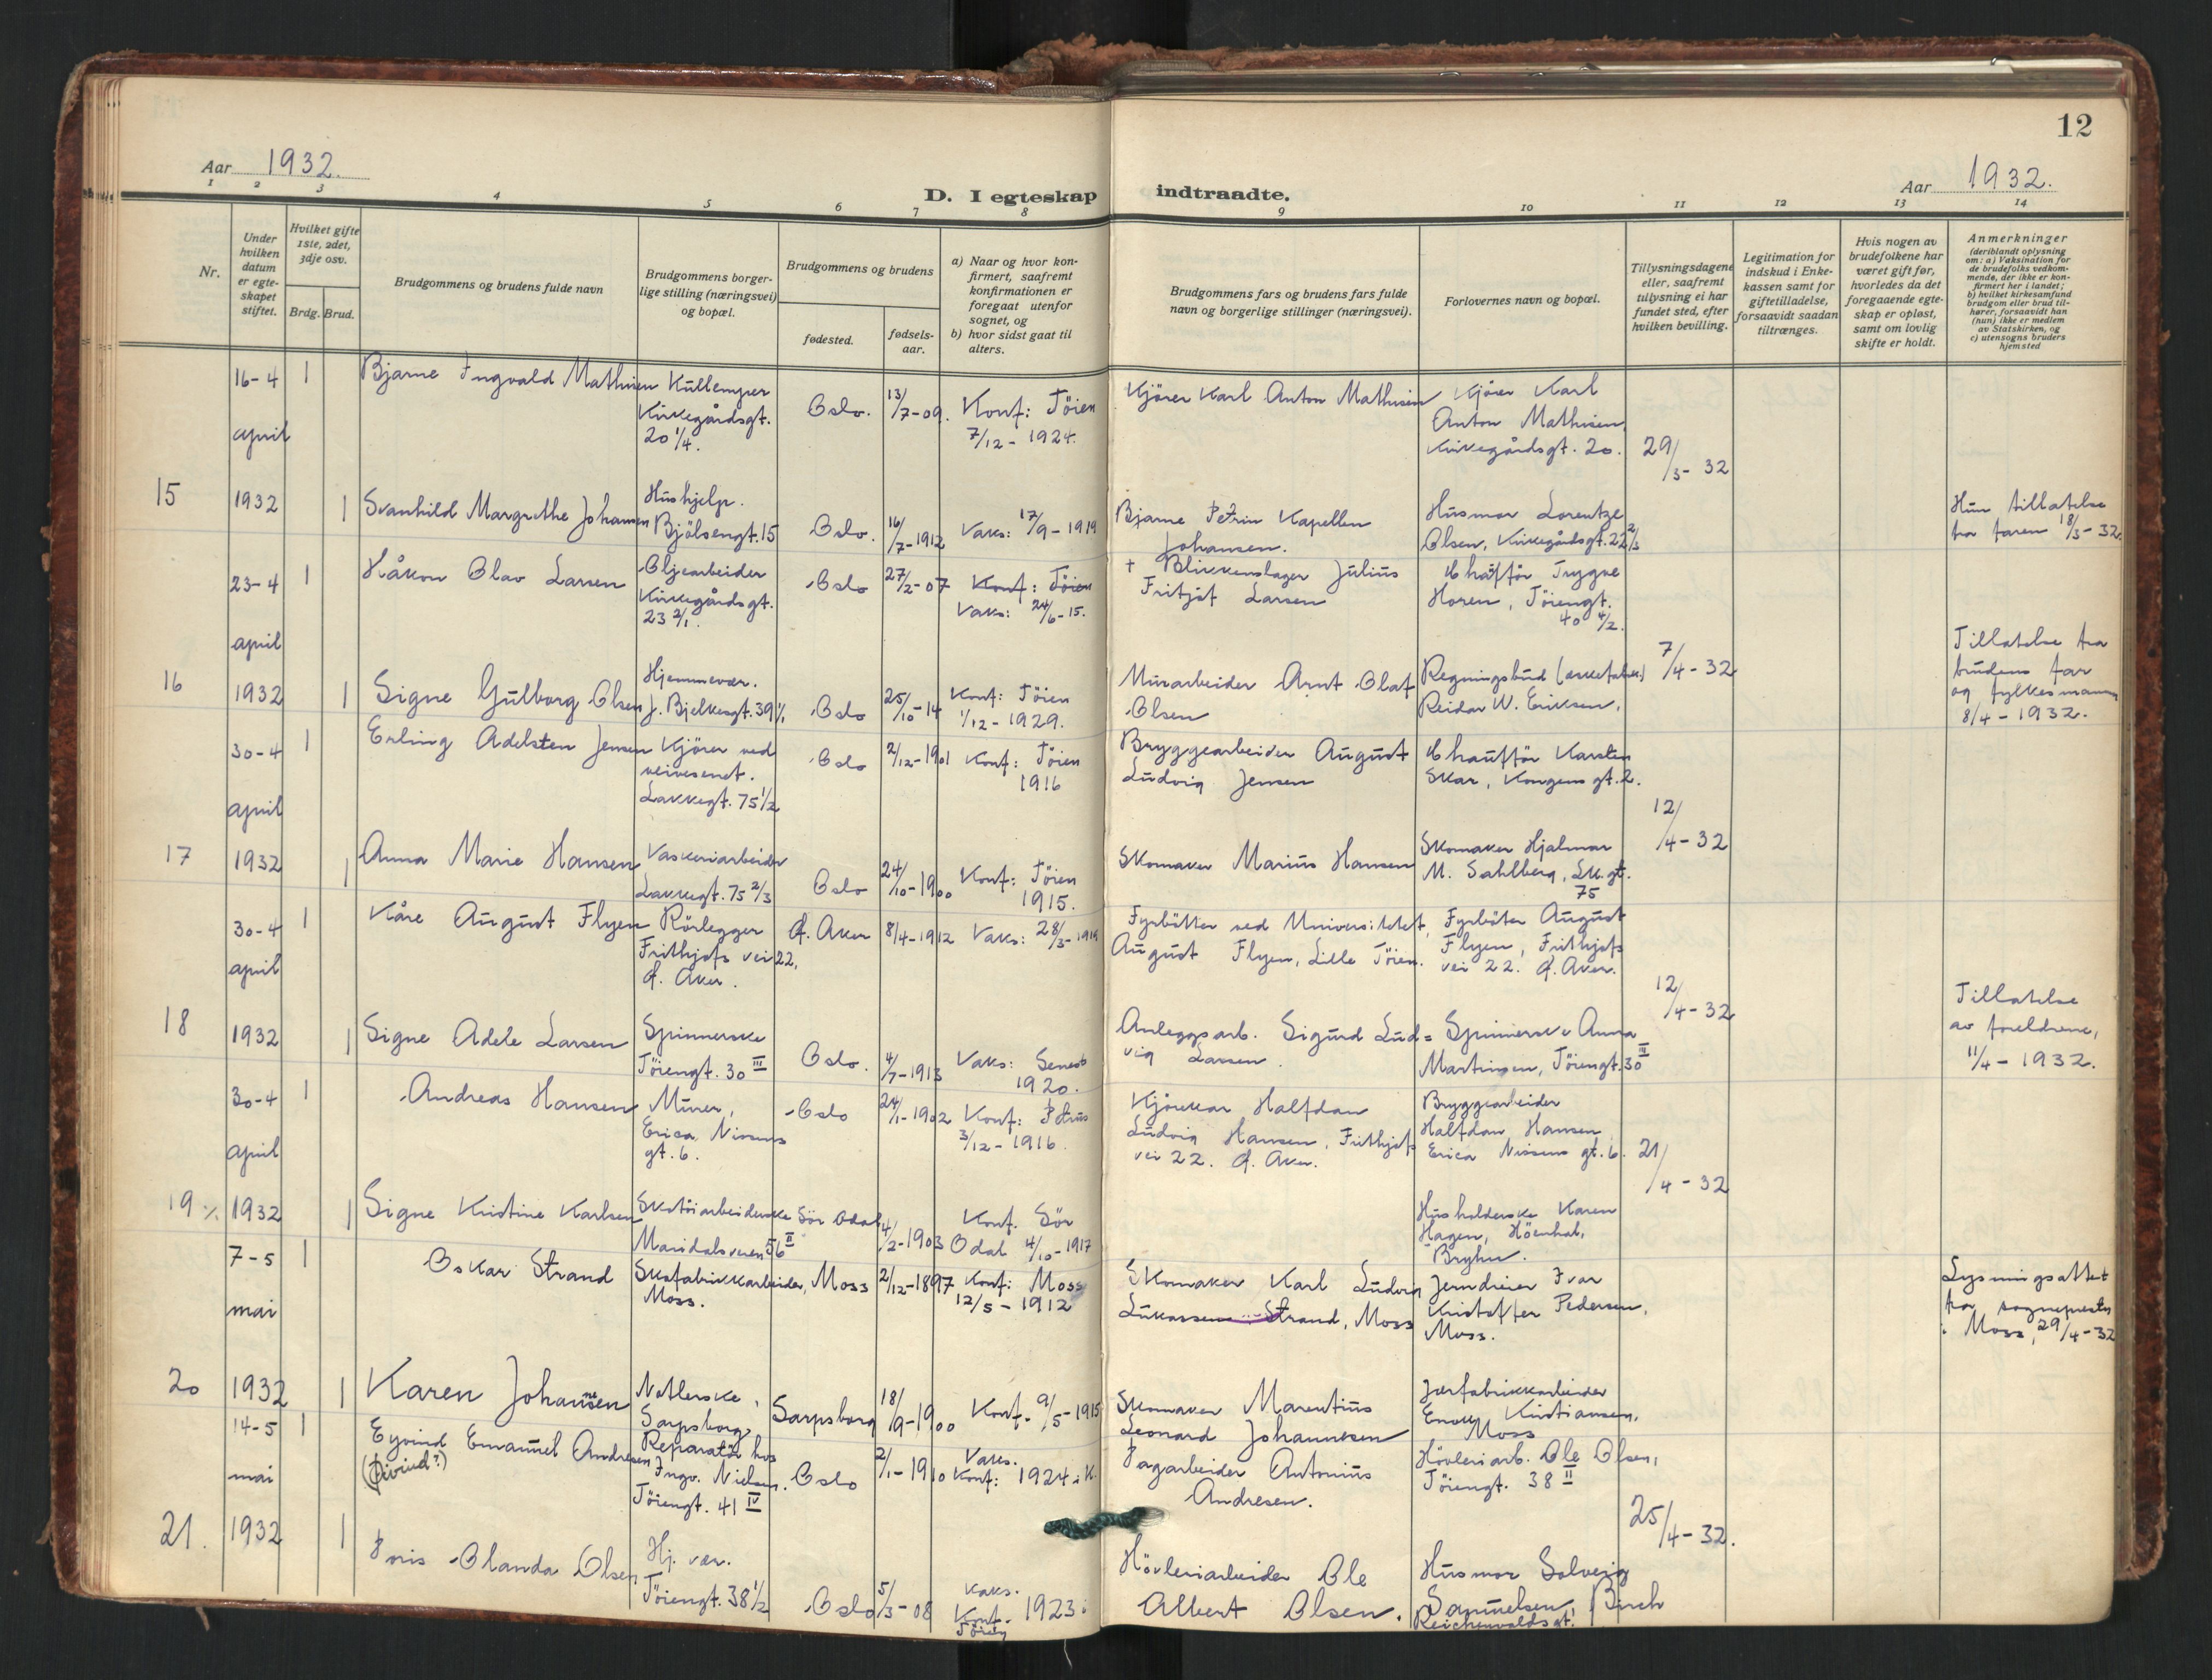 12
Aar 1932.
D. I egteskap indtraadte.
Aar 1932.
1 2 3 4 5 6 7 8 9 10 11 12 13 14
Nr.
Under
hvilken
datum
er egte-
skapet
stiftet.
Hvilket gifte
1ste, 2det,
3dje osv.
Brdg. Brud.
Brudgommens og brudens fulde navn
Brudgommens borger-
lige stilling (næringsvei)
og bopæl.
Brudgommens og brudens
fødested.
fødsels-
aar.
a) Naar og hvor kon-
firmert, saafremt
konfirmationen er
foregaat utenfor
sognet, og
b) hvor sidst gaat til
alters.
Brudgommens fars og brudens fars fulde
navn og borgerlige stillinger (næringsvei).
Forlovernes navn og bopæl.
Tillysningsdagene
eller, saafremt
tillysning ei har
fundet sted, efter
hvilken bevilling.
Legitimation for
indskud i Enke-
kassen samt for
giftetilladelse,
forsaavidt saadan
tiltrænges.
Hvis nogen av
brudefolkene har
været gift før,
hvorledes da det
foregaaende egte-
skap er opløst,
samt om lovlig
skifte er holdt.
Anmerkninger
(deriblandt oplysning
om: a) Vaksination for
de brudefolks vedkom-
mende, der ikke er kon-
firmert her i landet;
b) hvilket kirkesamfund
brudgom eller brud til-
hører, forsaavidt han
(hun) ikke er medlem
av Statskirken, og
c) utensogns bruders
hjemsted
15
16-4
april
1932
1
Bjarne Ingvald Mathisen
Kullemper
Kirkegårdsgt.
20 1/4.
Oslo.
13/7-09.
Konf: Töien
7/12 - 1924.
Kjörer Karl Anton Mathisen
Kjörer Karl
Anton Mathisen,
Kirkegårdsgt. 20.
29/3 - 32
1
Svanhild Margrethe Johansen
Hushjelp.
Bjölsengt. 15
Oslo.
16/7-1912
Vaks: 17/9 - 1919
Bjarne Petrin Kapellen
Johansen.
Husmor Lorentze
Olsen, Kirkegårdsgt. 22 2/3
Hun tillatelse
fra faren 18/3 - 32.
16
23-4
april
1932
1
Håkon Olav Larsen
Oljearbeider
Kirkegårdsgt.
23 2/1.
Oslo
27/2-07
Konf: Töien
Vaks: 24/6 - 15.
† Blikkenslager Julius
Fritjof Larsen
Chafför Trygve
Horen, Töiengt.
40 4/2.
7/4 - 32
1
Signe Gulborg Olsen
Hjemmevær.
J. Bjelkesgt. 39 1/1
Oslo
25/10-14
Konf: Töien
1/12 - 1929.
Murarbeider Arnt Olaf
Olsen
Regningsbud
Reidar W. Eriksen,
Tillatelse fra
brudens far
og fylkesmannen
8/4 - 1932.
17
30-4
april
1932
1
Erling Adelsten Jensen
Kjörer ved
veivesenet.
Lakkegt. 75 1/2
Oslo
2/12-1901
Konf: Töien
1916
Bryggearbeider August
Ludvig Jensen
Chafför Karsten
Skar, Kongens gt. 2.
12/4 - 32
1
Anna Marie Hansen
Vaskeriarbeider
Lakkegt. 75 2/3
Oslo
24/10-1900
Konf: Töien
1915.
Skomaker Marius Hansen
Skomaker Hjalmar
M. Sahlberg, Lk.gt.
75
18
30-4
april
1932
1
Kåre August Flyen
Rörlegger
Frithjofs vei 22,
Ø. Aker.
Ø. Aker
8/4-1912
Vaks: 28/3 - 1919
Fyrböter ved Universitetet,
August Flyen, Lille Töien.
Fyrböter August
Flyen, Frithjofs
vei 22. Ø. Aker.
12/4 - 32
1
Signe Adele Larsen
Spinnerske
Töiengt. 30 III
Oslo.
4/7-1913
Vaks: Senest
1920.
Anleggsarb. Sigurd Lud=
vig Larsen.
Spinnerske Anna
Martinsen, Töiengt. 30 III
Tillatelse
av foreldrene,
11/4 - 1932.
19
30-4
april
1932
1
Andreas Hansen
Murer,
Erica Nissens
gt. 6.
Oslo
24/1-1902
Konf: Petrus
3/12 - 1916.
Kjörekar Halfdan
Ludvig Hansen, Frithjofs
vei 22. Ø. Aker.
Bryggearbeider
Halfdan Hansen
Erica Nissens gt. 6.
21/4 - 32
1
Signe Kristine Karlsen
Skotöiarbeiderske
Maridalsveien 56 II
Sör Odal
4/2-1903
Konf. Sör
Odal 4/10 - 1917
Husholderske Karen
Hagen, Höenhal,
Bryhn.
20
7-5
mai
1932
1
Oskar Strand
Skofabrikkarbeider,
Moss.
Moss
2/12-1897
Konf: Moss
12/5 - 1912
Skomaker Karl Ludvig
Lukassen Strand, Moss
Jerndreier Ivar
Kristoffer Pedersen,
Moss.
Lysningsattest
fra sognepresten
i Moss, 29/4 - 32
1
Karen Johannesen
Natlerske,
Sarpsborg
Sarpsborg
18/9-1900
Konf. 9/5 - 1915
Skomaker Marentius
Leonard Johannesen
Jerfabrikkarbeider
Enok Kristiansen,
Moss
21.
14-5
mai
1932
1
Eyvind Emanuel Andresen
(Eivind?)
Reparatör hos
Ingv. Nielsen.
Töiengt. 41 IV
Oslo
2/1-1910
Vaks.
Konf: 1924 i K.
Fagarbeider Antonius
Andresen.
Hövleriarb. Ole Olsen,
Töiengt. 38 II
25/4 - 32.
1
Joris Olanda Olsen
Hj. vær.
Töiengt. 38 1/2
Oslo
5/3-08
Vaks.
Konf. 1923 i
Töien
Hövleriarbeider Ole
Albert Olsen.
Husmor Solveig
Samuelsen, Birch
Reichenwaldsgt.